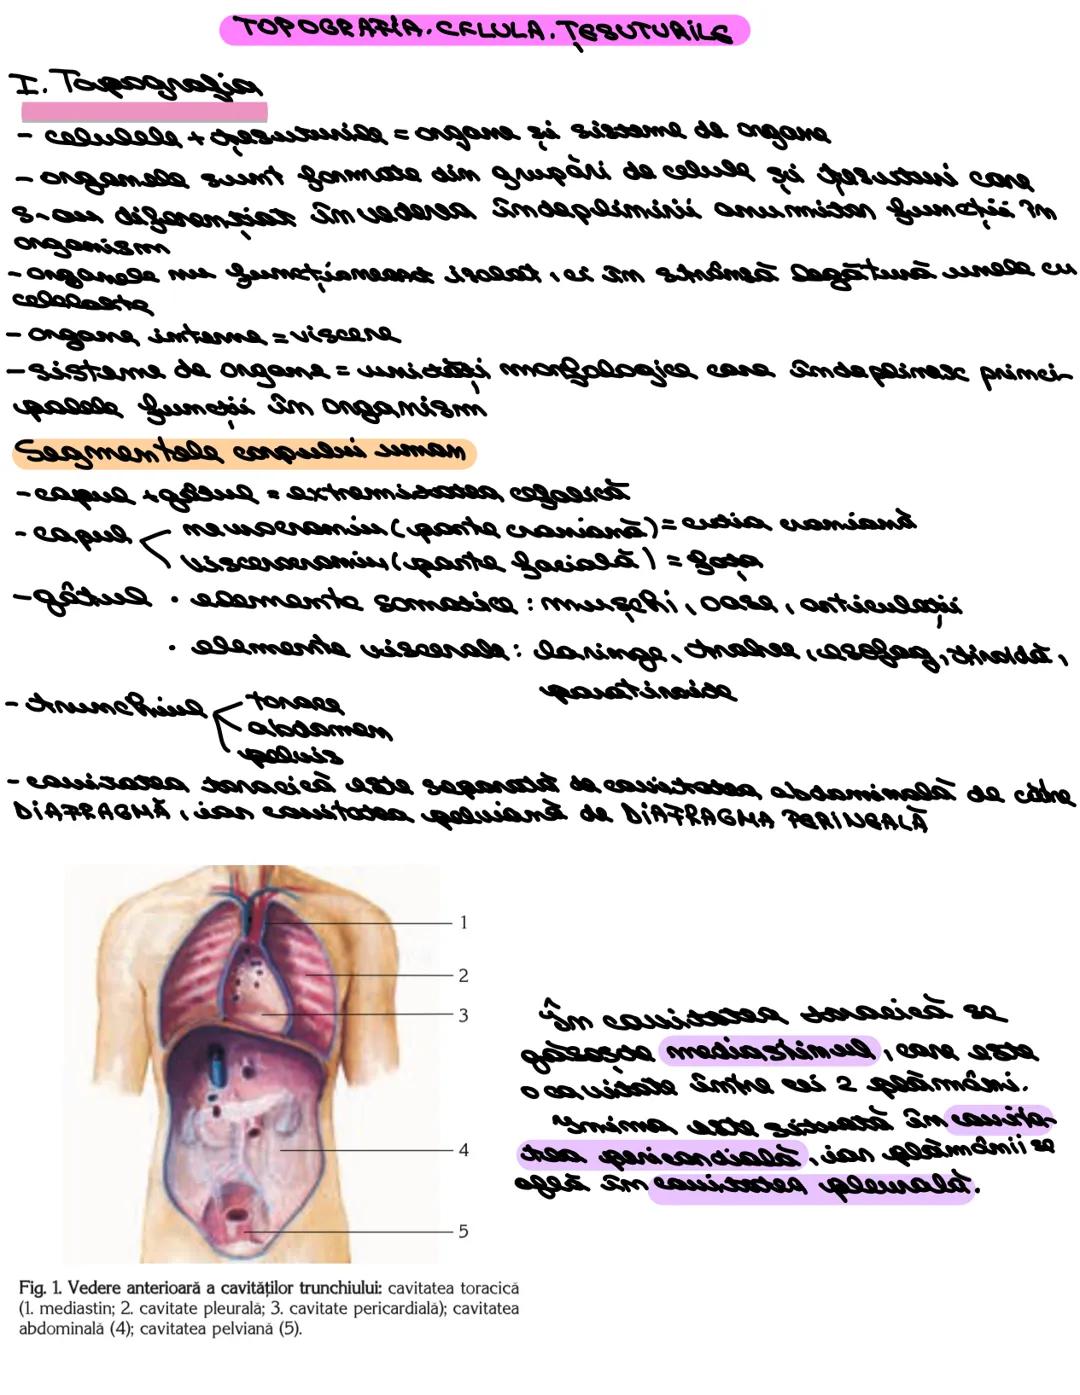 TOPOGRAFIA. CELULA. ȚESUTURILE
I. Topografia
- celulele + țesuturile = organe și sisteme de organe
- organele sunt formate din grupări de celule și țesuturi care
s-au diferențiat în vederea îndeplinirii anumitor funcții în
organism
- organele nu funcționează izolat, ci în strânsă legătură unele cu
celelalte
- organe interne = viscere
- sisteme de organe = unități morfologice care îndeplinesc princi-
palele funcții în organism
Segmentele corpului uman
- capul + gâtul = extremitatea cefalică
- capul
neurocraniu (parte craniană) = cutia craniană
viscerocraniu (parte facială) = fața
- gâtul • elemente somatice : mușchi, oase, articulații
• elemente viscerale : laringe, trahee, esofag, tiroidă,
paratiroide
- trunchiul
torace
abdomen
pelvis
- cavitatea toracică este separată de cavitatea abdominală de către
DIAFRAGMĂ, iar cavitatea pelviană de DIAFRAGMA PERINEALĂ
1
2
3
4
5
În cavitatea toracică se
găsește mediastinul, care este
o cavitate între cei 2 plămâni.
Inima este situată în cavita-
tea pericardială, iar plămânii se
află în cavitatea pleurală.
Fig. 1. Vedere anterioară a cavităților trunchiului: cavitatea toracică
(1. mediastin; 2. cavitate pleurală; 3. cavitate pericardială); cavitatea
abdominală (4); cavitatea pelviană (5).